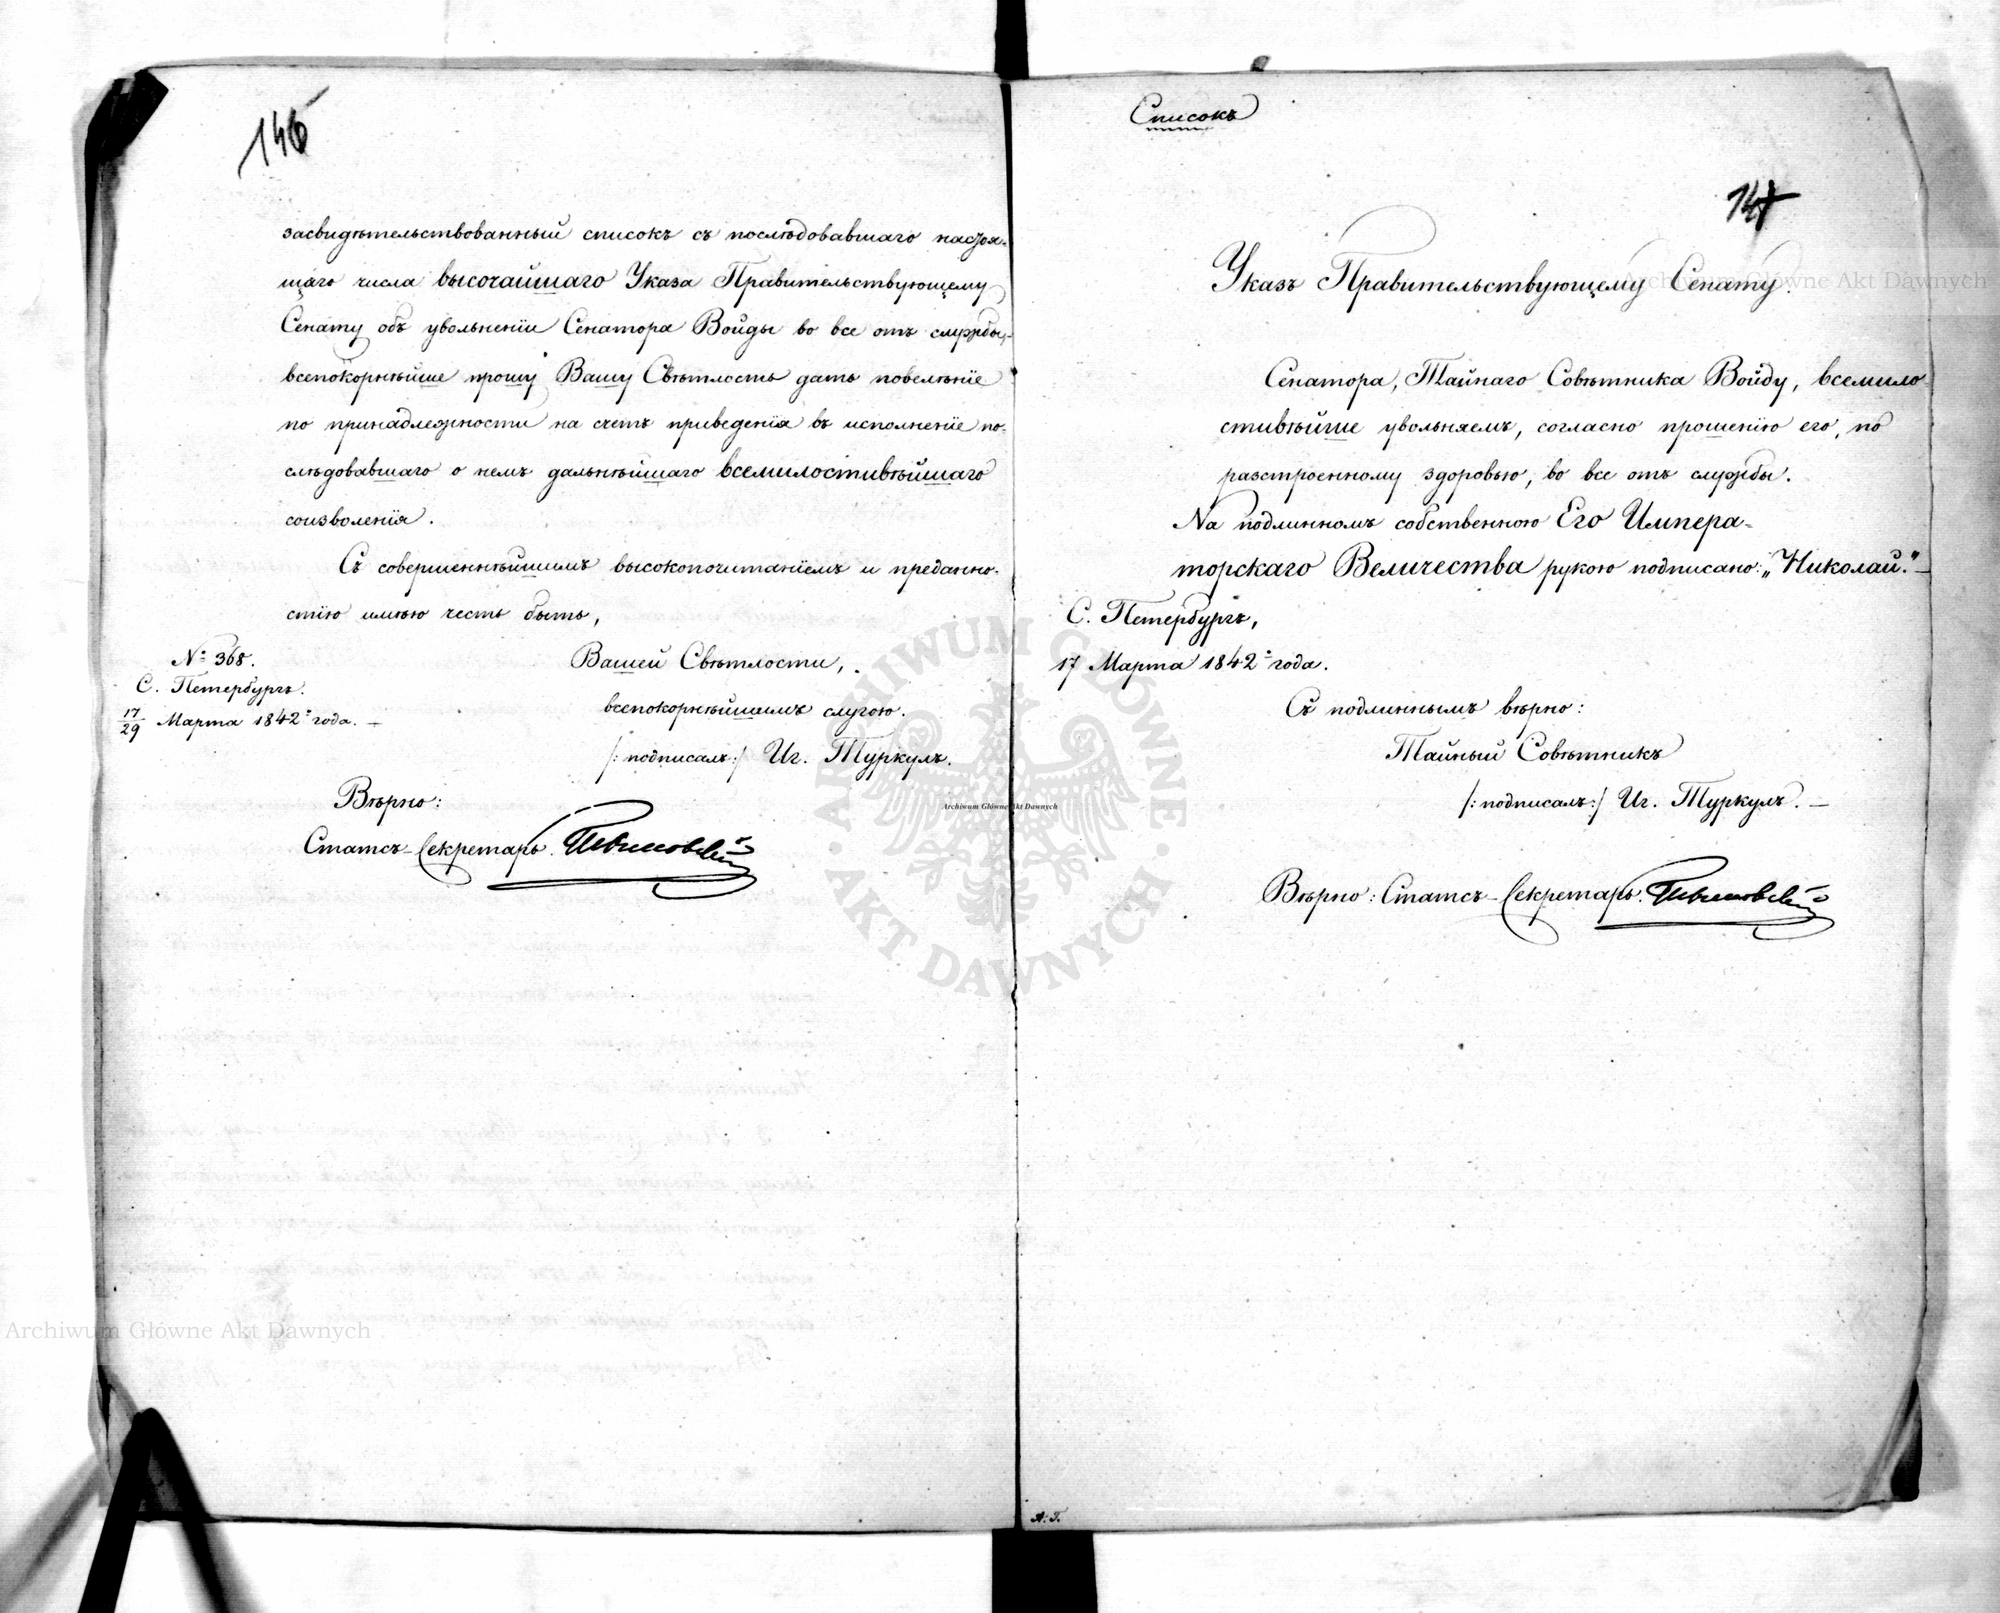 146
засвидѣтельствованный списокъ съ послѣдовавшаго настоя-
щаго числа высочайшаго Указа Правительствующему
Сенату объ увольненіи Сенатора Войды во все отъ службы,
всепокорнѣйше прошу Вашу Свѣтлость дать повелѣніе
по принадлежности на счетъ приведенія въ исполненіе по-
слѣдовавшаго о немъ дальнѣйшаго всемилостивѣйшаго
соизволенія.
Съ совершеннѣйшимъ высокопочитаніемъ и преданно-
стію имѣю честь быть,
Вашей Свѣтлости,
всепокорнѣйшимъ слугою.
/: подписалъ :/ Иг. Туркулъ.
№ 368.
С. Петербургъ.
17/29 Марта 1842 года. —
Вѣрно:
Статсъ-Секретарь.
Списокъ
147
Указъ Правительствующему Сенату.
Сенатора, Тайнаго Совѣтника Войду, всемило
стивѣйше увольняемъ, согласно прошенію его, по
разстроенному здоровью, во все отъ службы.
На подлинномъ собственною Его Импера-
торскаго Величества рукою подписано: „Николай.“ —
С. Петербургъ,
17 Марта 1842 года.
Съ подлиннымъ вѣрно:
Тайный Совѣтникъ
/: подписалъ :/ Иг. Туркулъ. —
Вѣрно: Статсъ-Секретарь.
Archiwum Główne Akt Dawnych
ARCHIWUM GŁÓWNE · AKT DAWNYCH ·
Archiwum Główne Akt Dawnych
Archiwum Główne Akt Dawnych